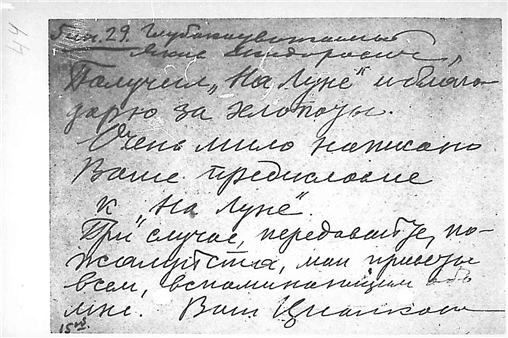 44
5 янв. 29. Глубокоуважаемый
Яков Исидорович,
Получил „На Луне" и благо-
дарю за хлопоты.
Очень мило написано
Ваше предисловие
к „На Луне".
При случае, передавайте, по-
жалуйста, мои приветы
всем, вспоминающим обо
мне. Ваш Циолковский